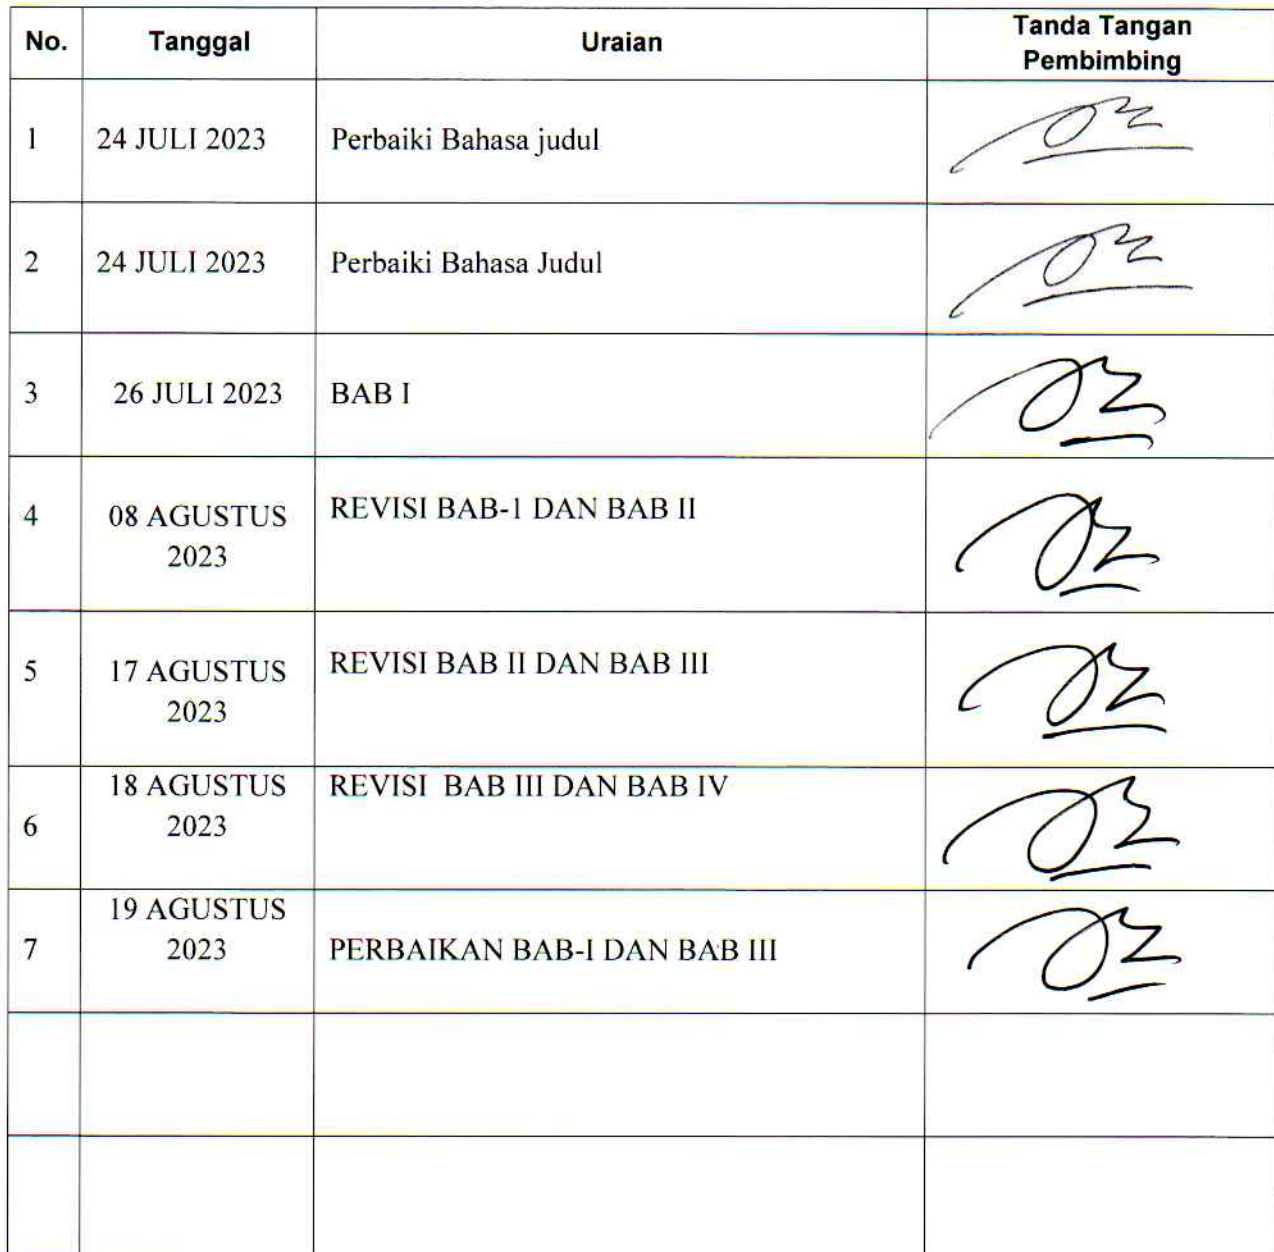 No. Tanggal Uraian Tanda Tangan
Pembimbing
1 24 JULI 2023 Perbaiki Bahasa judul
2 24 JULI 2023 Perbaiki Bahasa Judul
3 26 JULI 2023 BAB I
4 08 AGUSTUS REVISI BAB-1 DAN BAB II
2023
5 17 AGUSTUS REVISI BAB II DAN BAB III
2023
18 AGUSTUS REVISI BAB III DAN BAB IV
6 2023
19 AGUSTUS
7 2023 PERBAIKAN BAB-I DAN BAB III